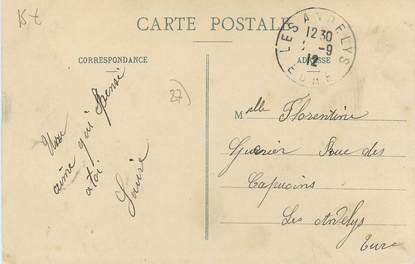 15 €
CARTE POSTALE
LES ANDELYS
12 30
-9
12
EURE
CORRESPONDANCE
ADRESSE
27)
Une
aime qui pense
a toi
Louise
Melle Florentine
Rue des
Capucins
Les Andelys
Eure